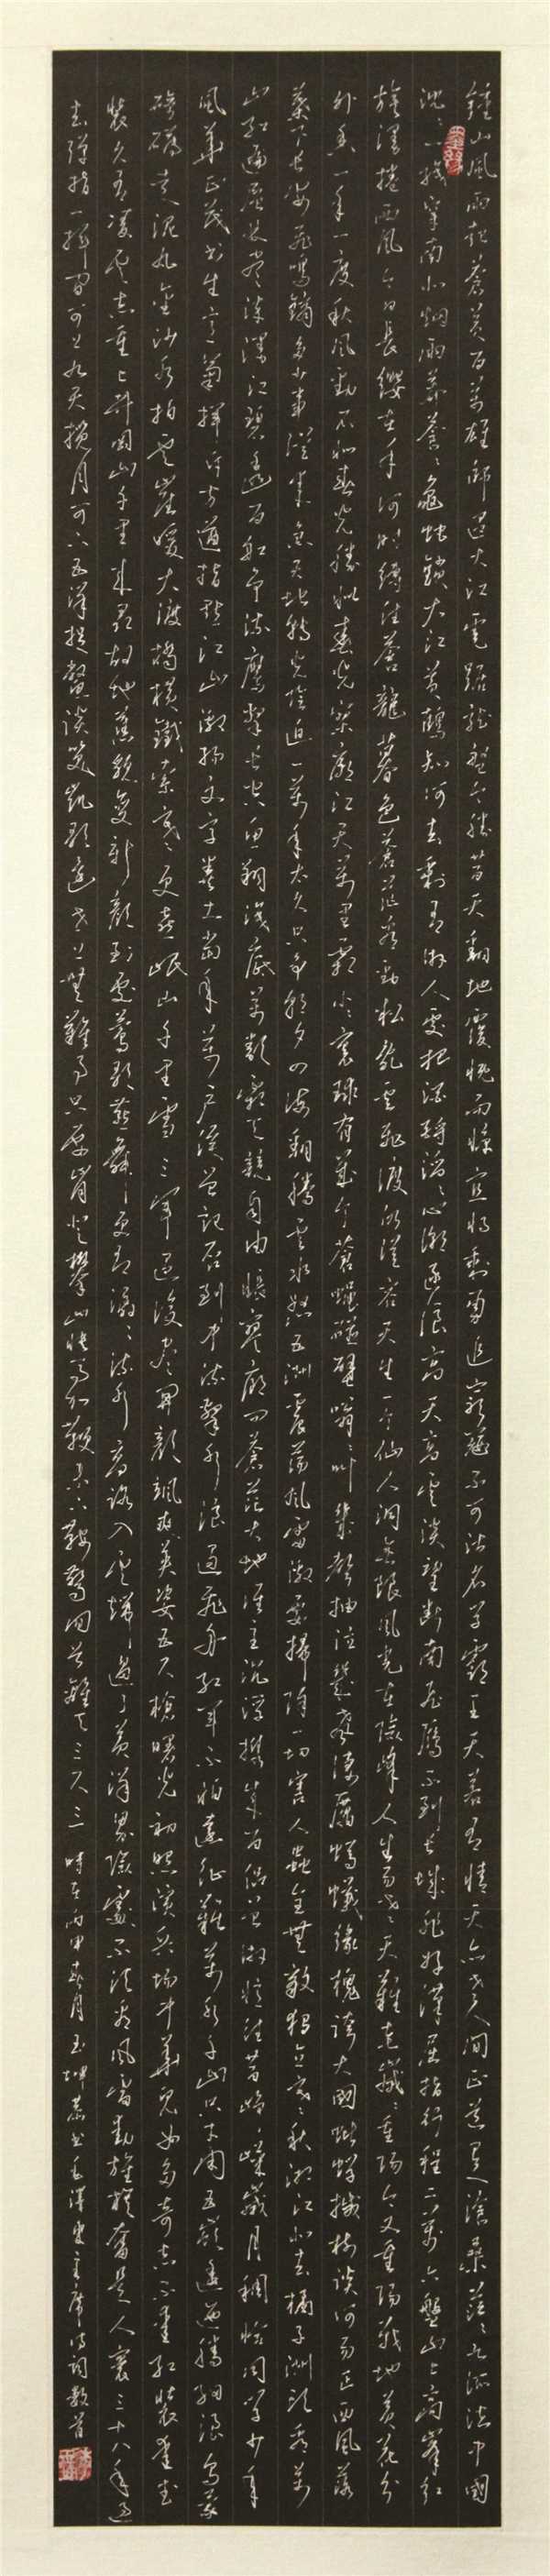 鍾山風雨起蒼黃百萬雄師過大江虎踞龍盤今勝昔天翻地覆慨而慷宜將剩勇追窮寇不可沽名學霸王天若有情天亦老人間正道是滄桑茫茫九派流中國
沉沉一線穿南北烟雨莽蒼蒼龜蛇鎖大江黃鶴知何去剩有游人處把酒酹滔滔心潮逐浪高天高雲淡望斷南飛雁不到長城非好漢屈指行程二萬六盤山上高峰紅
旗漫捲西風今日長纓在手何時縛住蒼龍暮色蒼茫看勁松亂雲飛渡仍從容天生一个仙人洞無限風光在險峰人生易老天難老歲歲重陽今又重陽戰地黃花分
外香一年一度秋風勁不似春光勝似春光寥廓江天萬里霜小小寰球有幾个蒼蠅碰壁嗡嗡叫幾聲抽泣幾聲淒厲螞蟻緣槐誇大國蚍蜉撼樹談何易正西風落
葉下長安飛鳴鏑多少事從來急天地轉光陰迫一萬年太久只爭朝夕四海翻騰雲水怒五洲震蕩風雷激要掃除一切害人蟲全無敵獨立寒秋湘江北去橘子洲頭看萬
山紅遍層林盡染漫江碧透百舸爭流鷹擊長空魚翔淺底萬類霜天競自由悵寥廓問蒼茫大地誰主沉浮攜來百侶曾游憶往昔崢嶸歲月稠恰同學少年
風華正茂書生意氣揮斥方遒指點江山激揚文字糞土當年萬戶侯曾記否到中流擊水浪遏飛舟紅軍不怕遠征難萬水千山只等閑五嶺逶迤騰細浪烏蒙
磅礴走泥丸金沙水拍雲崖暖大渡橋橫鐵索寒更喜岷山千里雪三軍過後盡開顏颯爽英姿五尺槍曙光初照演兵場中華兒女多奇志不愛紅裝愛武
裝久有凌雲志重上井岡山千里來尋故地舊貌變新顏到處鶯歌燕舞更有潺潺流水高路入雲端過了黃洋界險處不須看風雷動旌旗奮是人寰三十八年過
去彈指一揮間可上九天攬月可下五洋捉鱉談笑凱歌還世上無難事只要肯登攀山快馬加鞭未下鞍驚回首離天三尺三 時在丙申春月玉坤恭書毛澤東主席詩詞數首